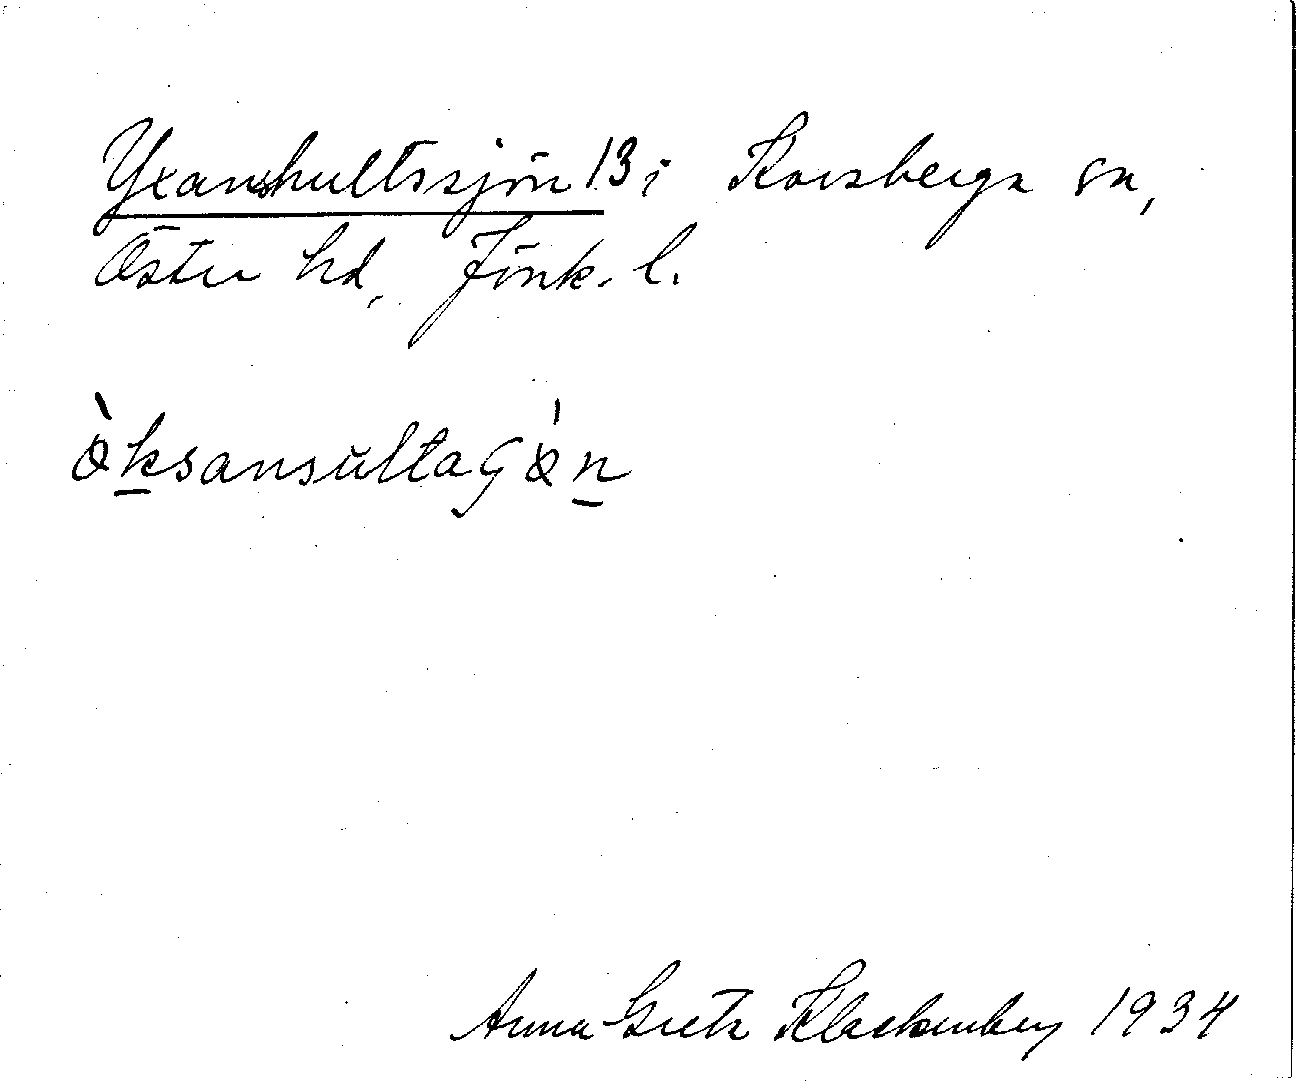 Yxanshultssjön 13 i Korsberga sn,
Östra hd, Jönk. l.
ø̀ksansultaɕø̀n
Anna Greta Klackenberg 1934